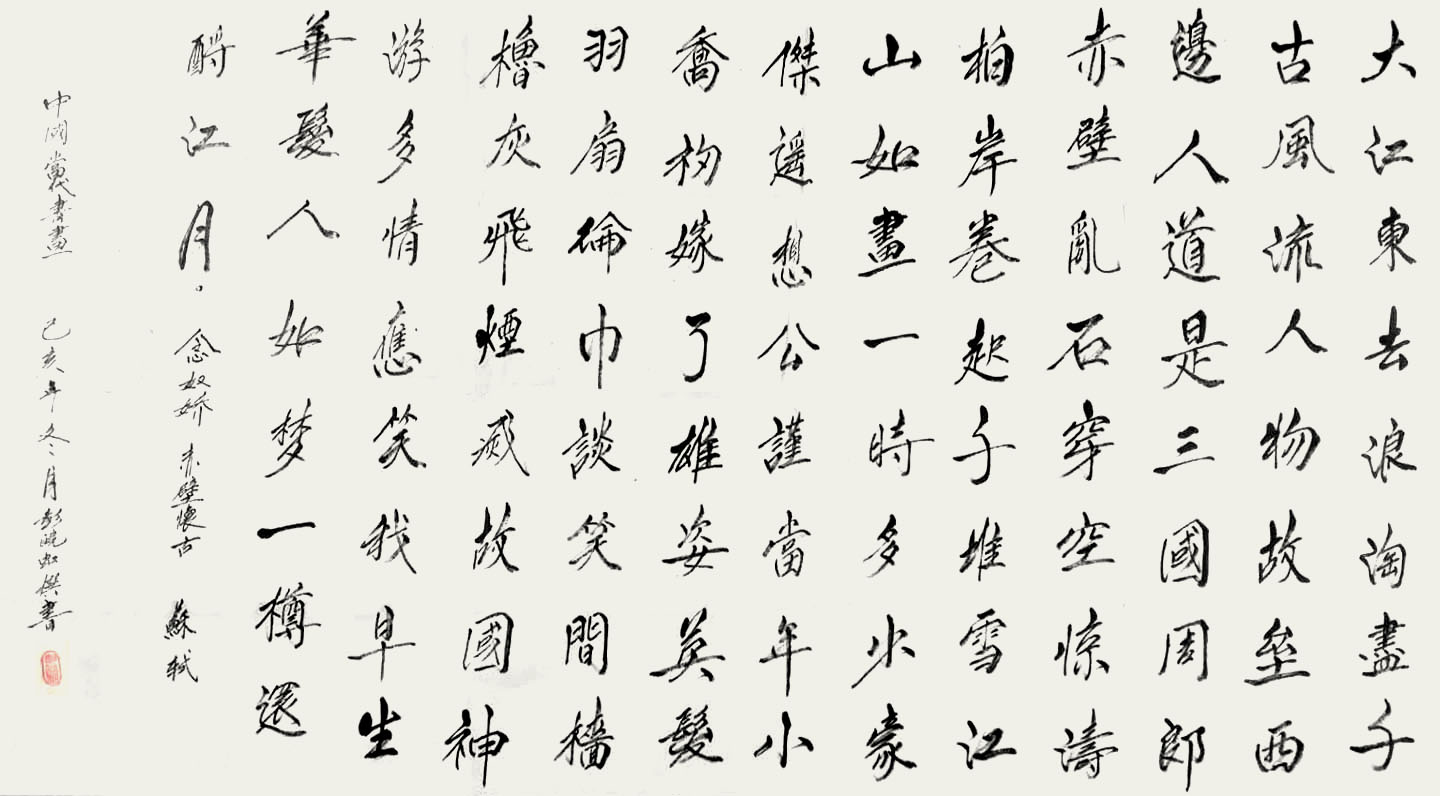 大江東去浪淘盡千
古風流人物故壘西
邊人道是三國周郎
赤壁亂石穿空惊濤
拍岸卷起千堆雪江
山如畫一時多少豪
傑遥想公謹當年小
喬初嫁了雄姿英髮
羽扇倫巾談笑間檣
櫓灰飛煙滅故國神
游多情應笑我早生
華髮人如梦一樽還
酹江月。 念奴娇 赤壁懷古 蘇軾
中國當代書畫 己亥年冬月彭曉虹撰書